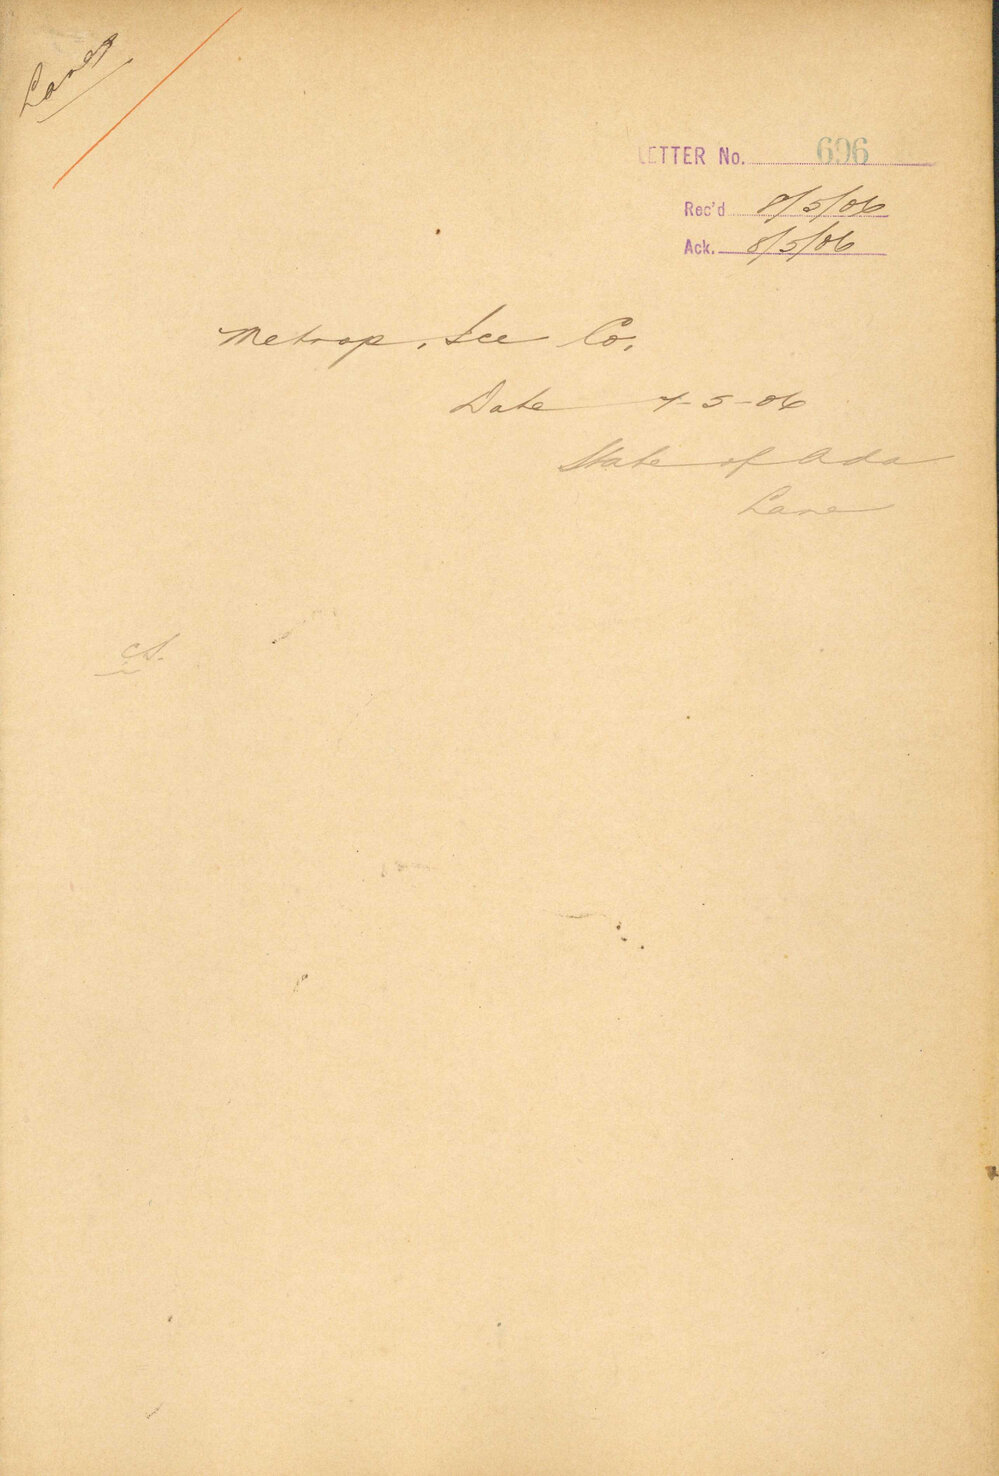 Lanes
LETTER No. 696
Rec'd 8/5/06
Ack. 8/5/06
Metrop. Ice Co.
Date 7-5-06
State of Ada
Lane